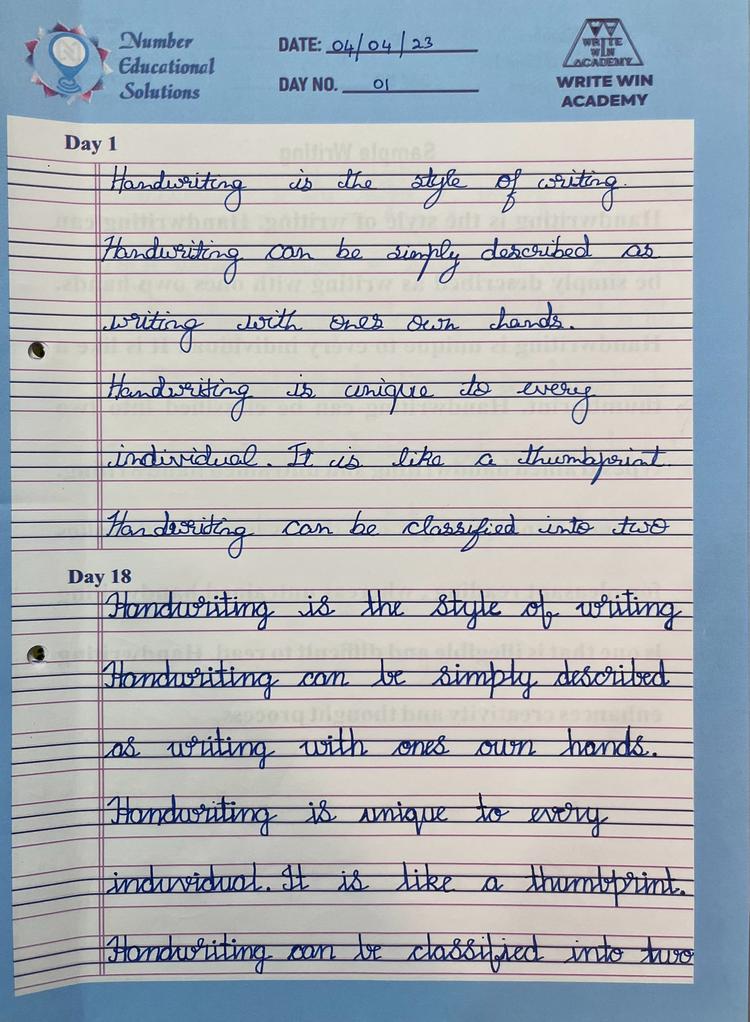 Number
Educational
Solutions
DATE: 04/04/23
DAY NO. 01
WRITE
WIN
ACADEMY
WRITE WIN
ACADEMY
Day 1
Handwriting is the style of writing.
Handwriting can be simply described as
writing with ones own hands.
Handwriting is unique to every
individual. It is like a thumbprint.
Handwriting can be classified into two
Day 18
Handwriting is the style of writing
Handwriting can be simply described
as writing with ones own hands.
Handwriting is unique to every
individual. It is like a thumbprint.
Handwriting can be classified into two